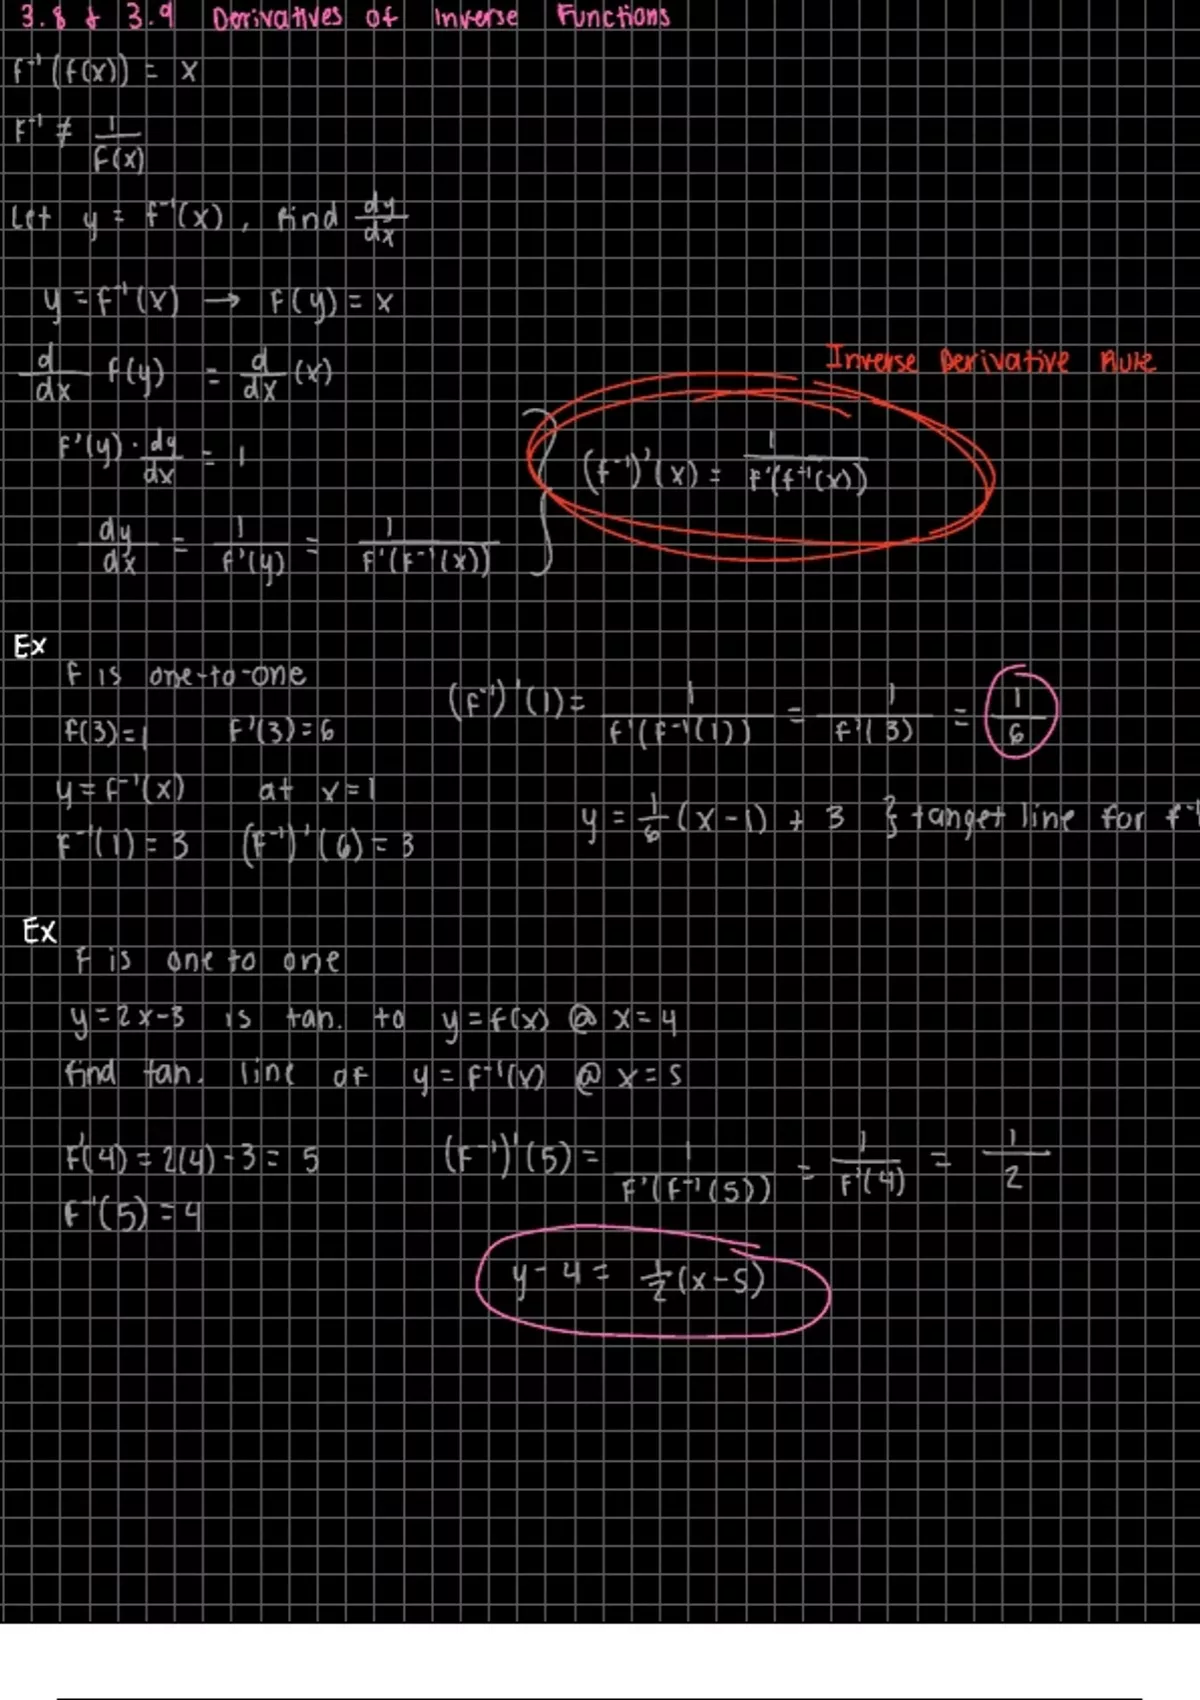 3.8 & 3.9 Derivatives of Inverse Functions
f⁻¹(f(x)) = x
F⁻¹ ≠ 1/F(x)
Let y = f⁻¹(x), find dy/dx
y = f⁻¹(x) → F(y) = x
d/dx f(y) = d/dx (x)
Inverse Derivative Rule
F'(y) · dy/dx = 1
(f⁻¹)'(x) = 1/F'(f⁻¹(x))
dy/dx = 1/f'(y) = 1/F'(F⁻¹(x))
Ex
F is one-to-one
(F⁻¹)'(1) = 1/f'(F⁻¹(1)) = 1/F'(3) = 1/6
f(3)=1 F'(3)=6
y = f⁻¹(x) at x=1
y = 1/6 (x-1) + 3 } tanget line for f⁻¹
F⁻¹(1) = 3 (F⁻¹)'(6) = 3
Ex
F is one to one
y=2x-3 is tan. to y=f(x) @ x=4
find tan. line of y = F⁻¹(x) @ x=5
F'(4) = 2(4)-3 = 5
(F⁻¹)'(5) = 1/F'(F⁻¹(5)) = 1/F'(4) = 1/2
F⁻¹(5) = 4
y-4 = 1/2(x-5)